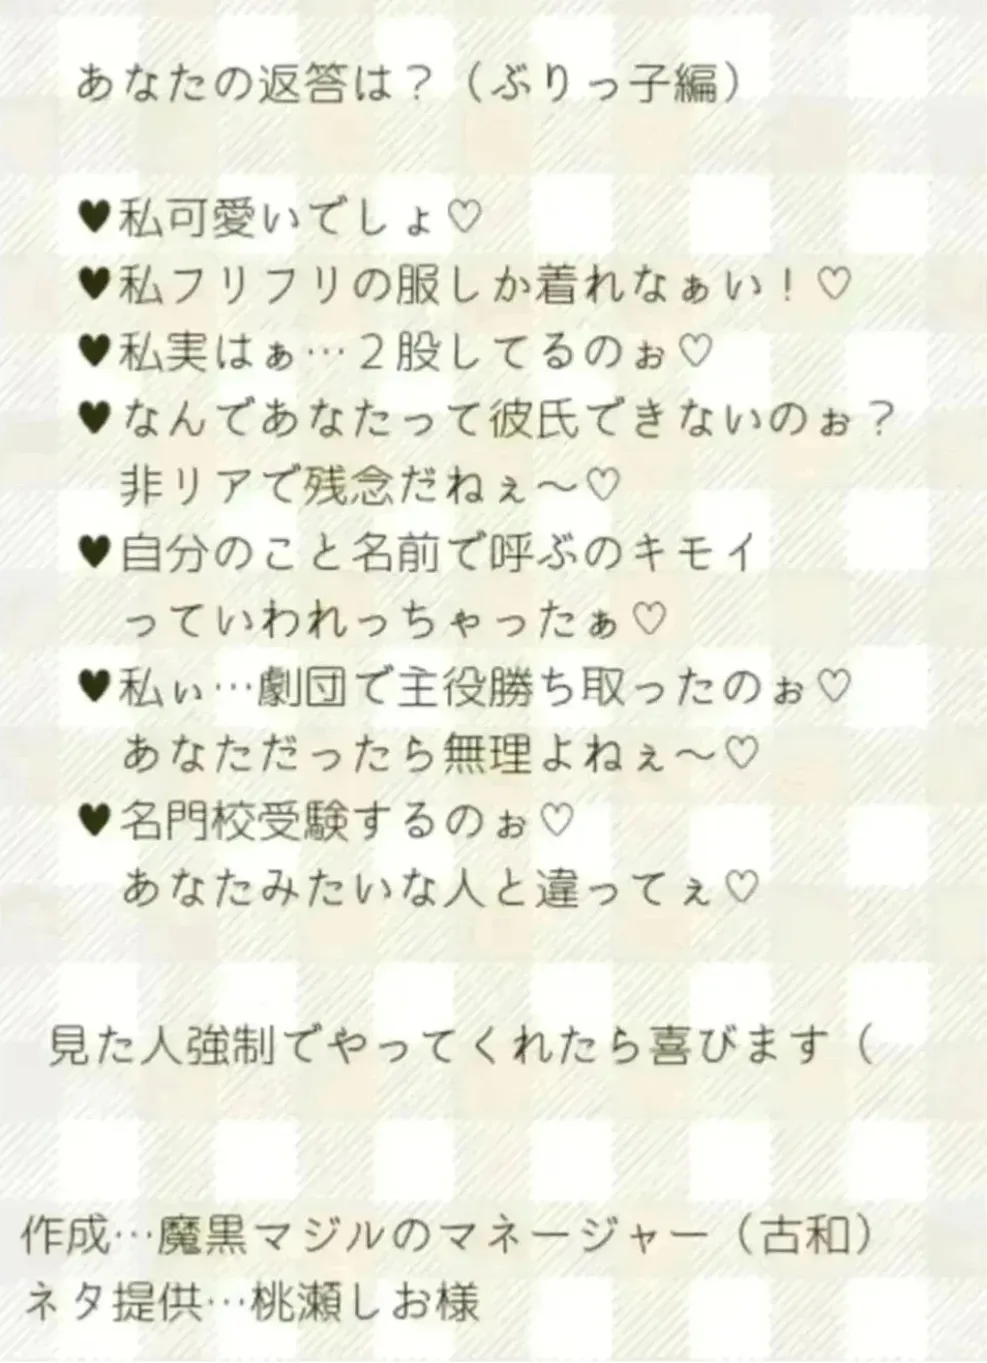 あなたの返答は？（ぶりっ子編）
♥私可愛いでしょ♡
♥私フリフリの服しか着れなぁい！♡
♥私実はぁ…２股してるのぉ♡
♥なんであなたって彼氏できないのぉ？
非リアで残念だねぇ〜♡
♥自分のこと名前で呼ぶのキモイ
っていわれっちゃったぁ♡
♥私ぃ…劇団で主役勝ち取ったのぉ♡
あなただったら無理よねぇ〜♡
♥名門校受験するのぉ♡
あなたみたいな人と違ってぇ♡
見た人強制でやってくれたら喜びます（
作成…魔黒マジルのマネージャー（古和）
ネタ提供…桃瀬しお様